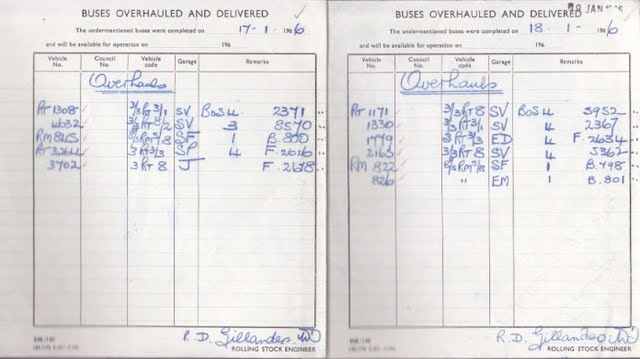 BUSES OVERHAULED AND DELIVERED
The undermentioned buses were completed on 17-1-1966
and will be available for operation on 196
Vehicle No. Council No. Vehicle code Garage Remarks
Overhauls
RT 1308 SV BoS 4. 2371
4632 SV 3 8570
RM 845 1 B.870
RT 3264 SP 4 F.2616
3702 3 RT 8 J F.2678
R.D. Gillanders
ROLLING STOCK ENGINEER
BUSES OVERHAULED AND DELIVERED
18 JAN 1966
The undermentioned buses were completed on 18-1-1966
and will be available for operation on 196
Vehicle No. Council No. Vehicle code Garage Remarks
Overhauls
RT 1171 3/3 RT 8 SV BoS 4. 3952
1330 SV 4 2367
1779 ED 4 F.2634
2163 3/3 RT 8 SV 4 5362
RM 822 SF 1 B.798
826 " EM 1 B.801
R.D. Gillanders
ROLLING STOCK ENGINEER